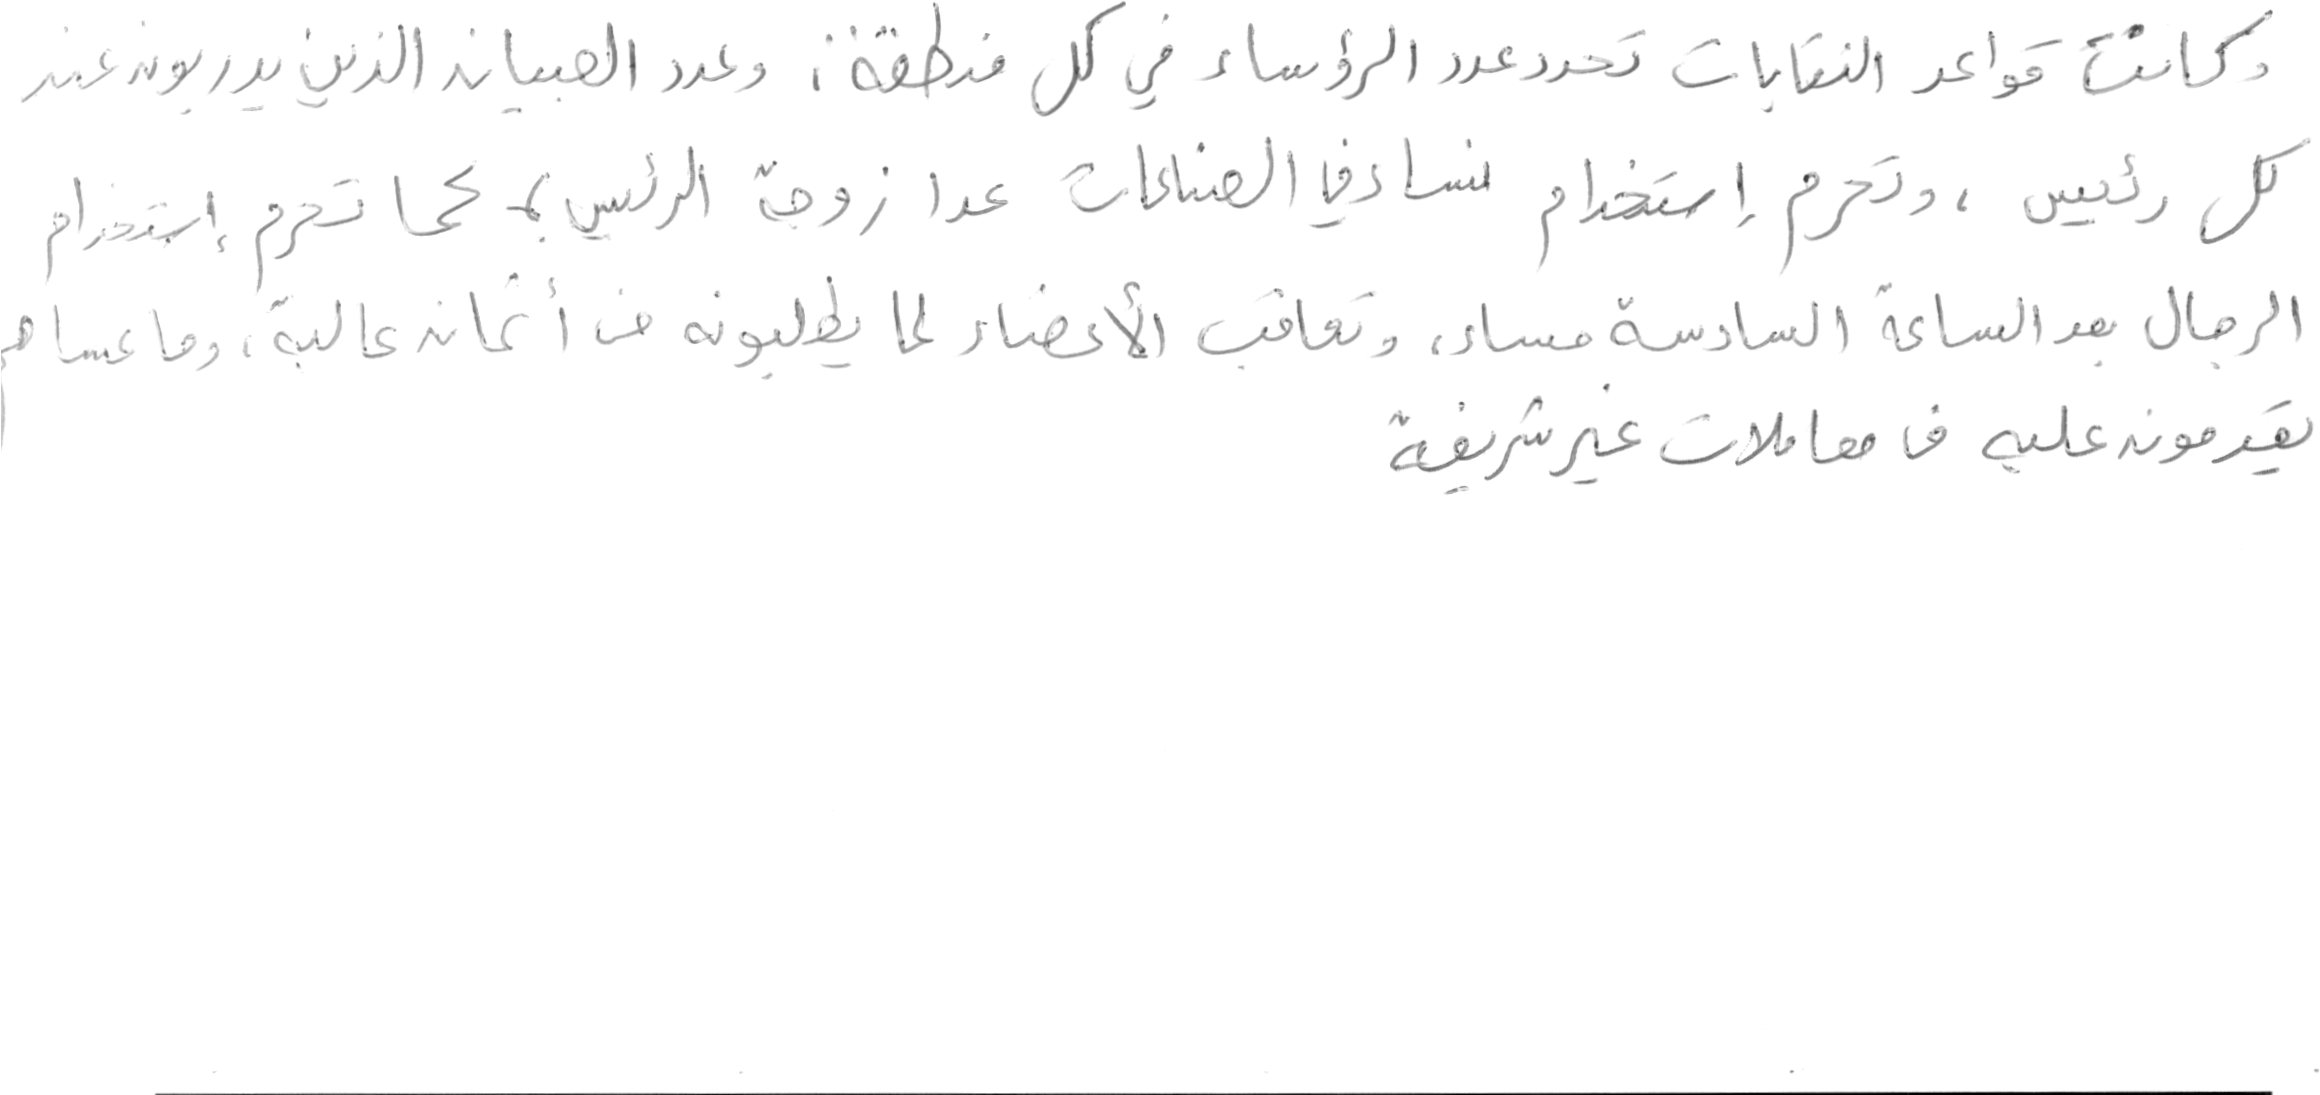 وكانت قواعد النقابات تحدد عدد الرؤساء في كل منطقة، وعدد الصبيان الذين يدربون عند
كل رئيس، وتحرم إستخدام النساء في الصناعات عدا زوجة الرئيس؛ كما تحرم إستخدام
الرجال بعد الساعة السادسة مساء، وتعاقب الأعضاء لما يطلبونه من أثمان عالية، وما عساهم
يقدمون عليه من معاملات غير شريفة